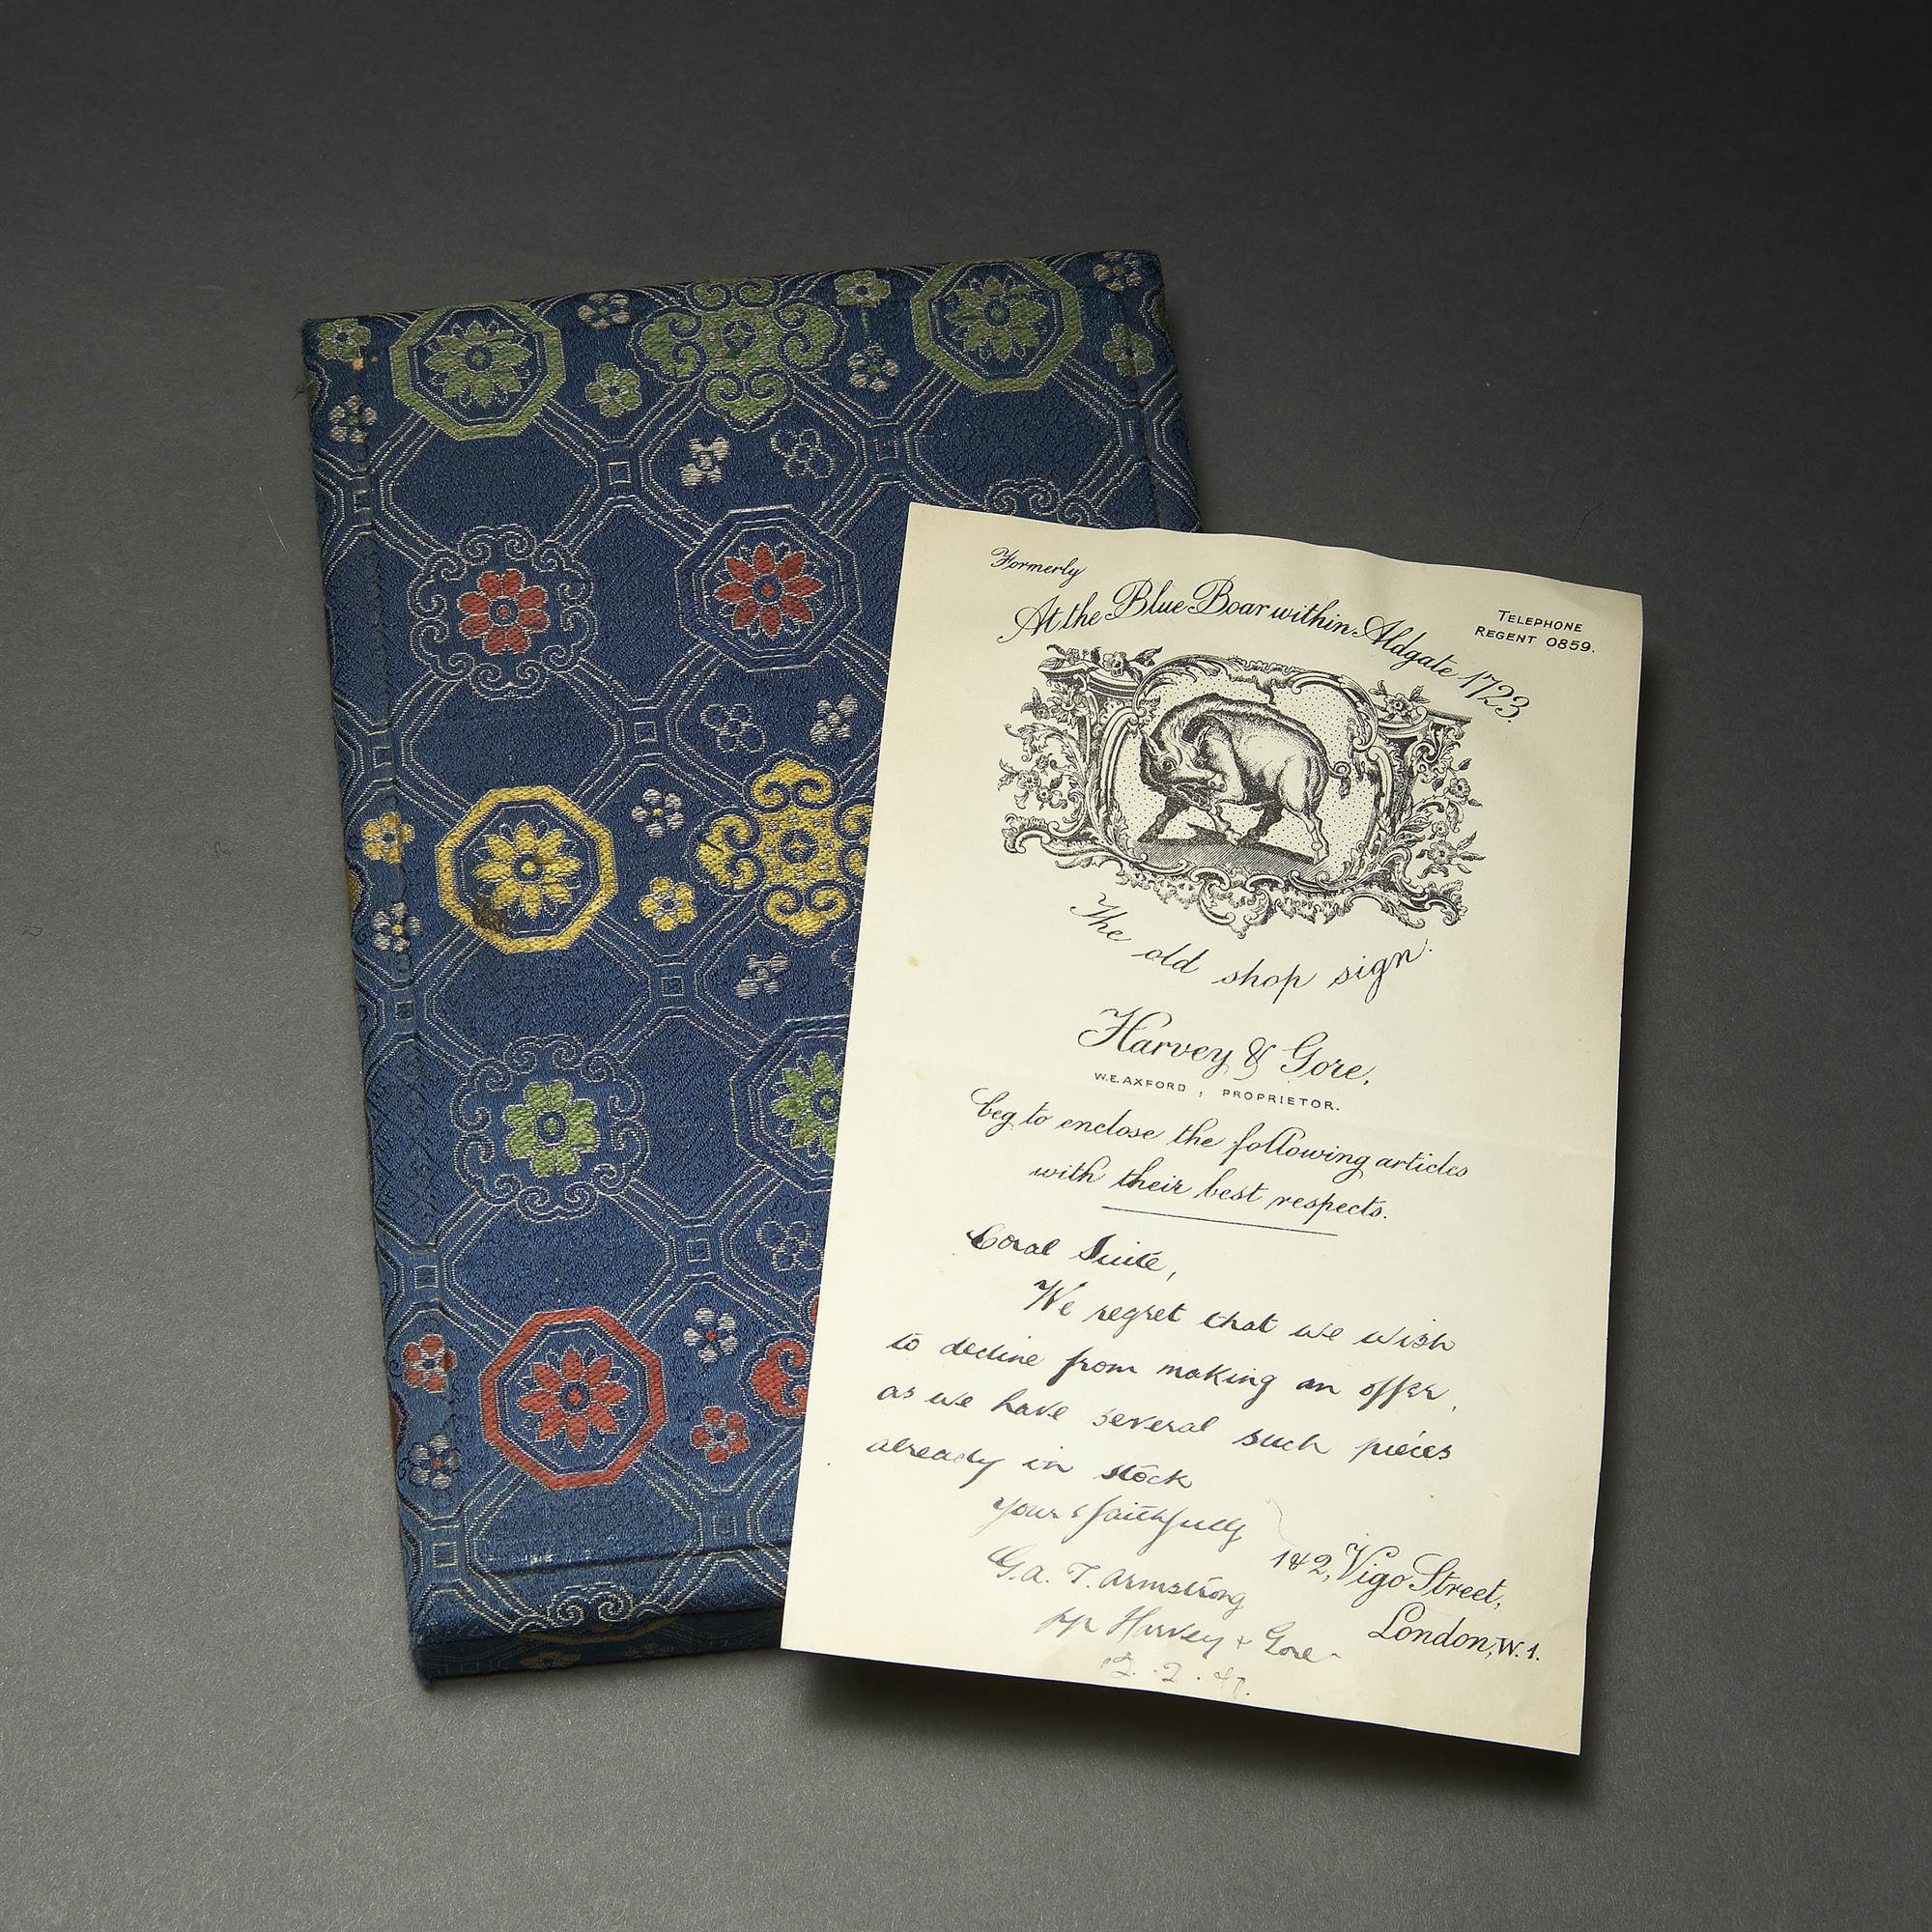 Formerly
At the Blue Boar within Aldgate 1723.
TELEPHONE
REGENT 0859.
The old shop sign.
Harvey & Gore,
W.E.AXFORD, PROPRIETOR.
beg to enclose the following articles
with their best respects.
Coral Suite,
We regret that we wish
to decline from making an offer,
as we have several such pieces
already in stock
Yours faithfully
G.A. T. Armstrong
pp Harvey + Gore
1&2, Vigo Street,
London, W.1.